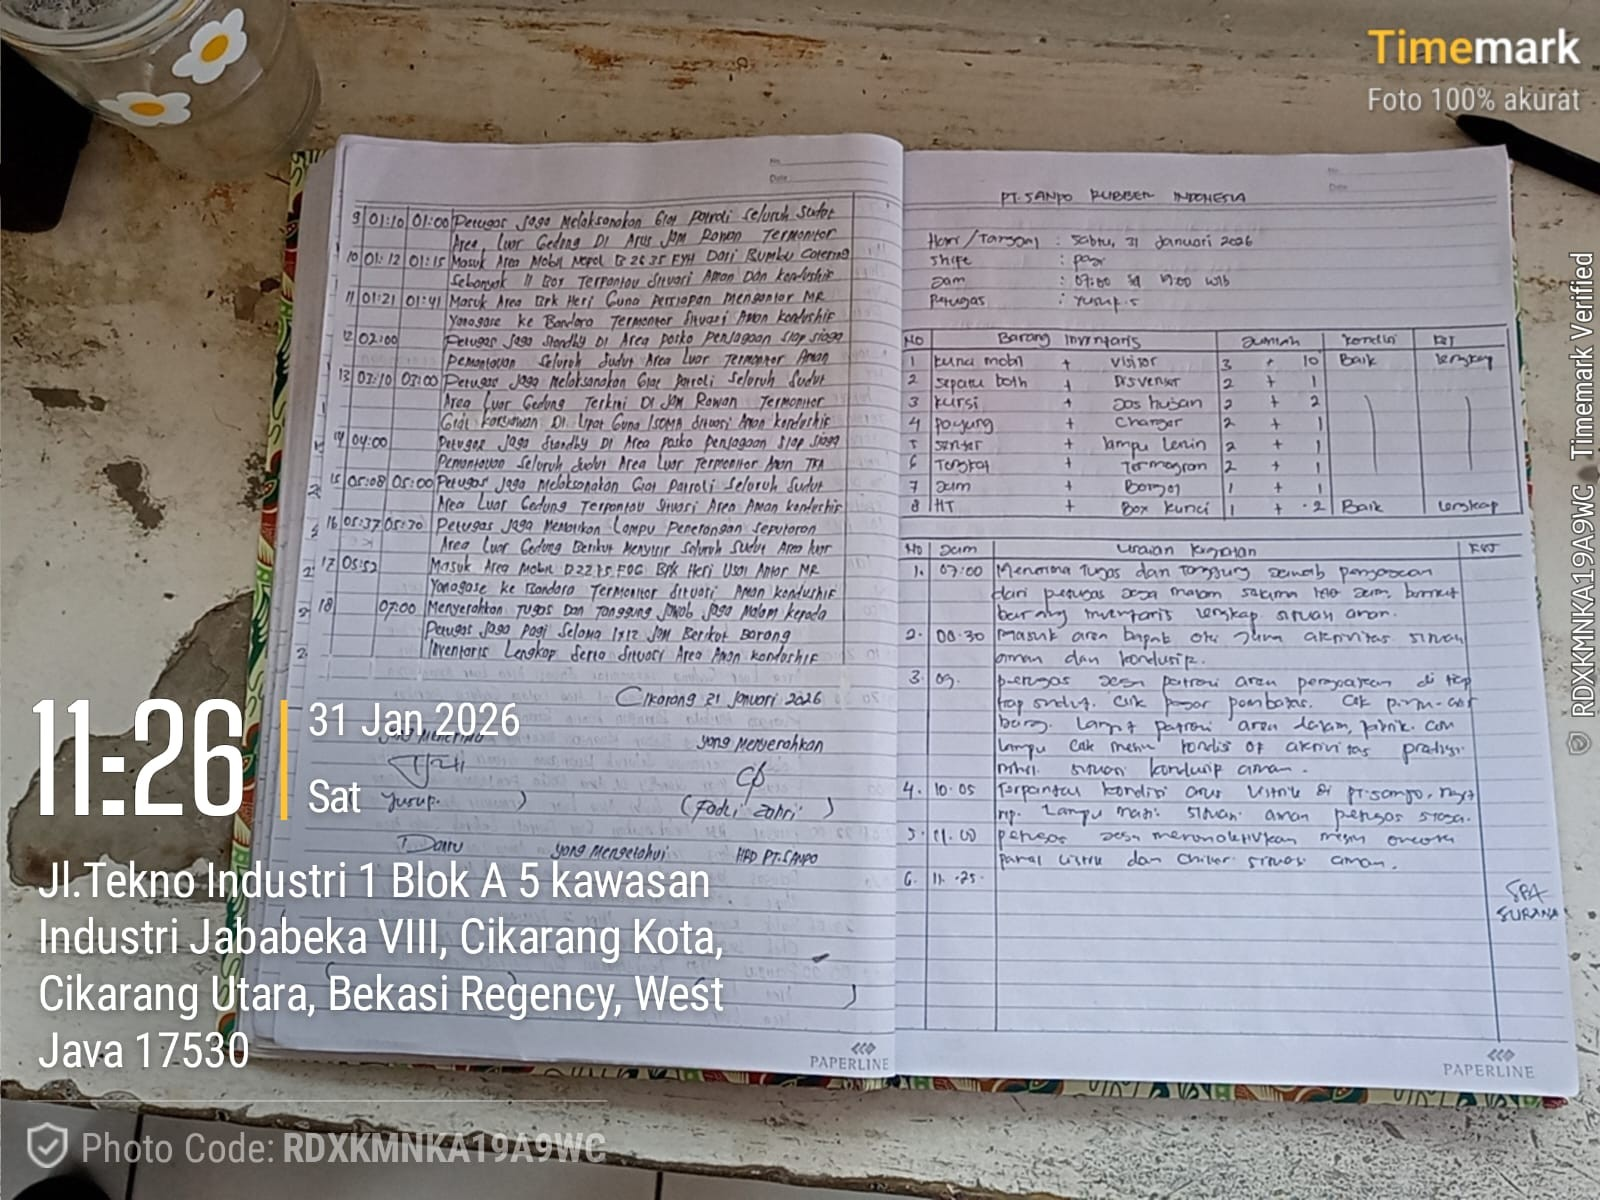 Timemark
Foto 100% akurat
No.
Date
9 01:10 01:00 Petugas Jaga Melaksanakan Giat Patroli Seluruh Sudut
Area Luar Gedung Di Arus Jam Rowan Termonitor
10 01:12 01:15 Masuk Area Mobil Nopol B 2635 FYH Dari Bumbu Catering
Sebanyak 11 Box Terpantau Situasi Aman Dan Kondushif
11 01:21 01:41 Masuk Area Bpk Heri Guna Persiapan Mengantar MR
Yanagase ke Bandara Termonitor Situasi Aman Kondushif
12 02:00 Petugas Jaga Standby Di Area Posko Penjagaan Siap Siaga
Pemantauan Seluruh Sudut Area Luar Termonitor Aman
13 03:10 03:00 Petugas Jaga Melaksanakan Giat Patroli Seluruh Sudut
Area Luar Gedung Terkini Di Jam Rowan Termonitor
Giat Karyawan Di Guna ISOMA Situasi Aman Kondushif
14 04:00 Petugas Jaga Standby Di Area Posko Penjagaan Siap Siaga
Pemantauan Seluruh Sudut Area Luar Termonitor Aman
15 05:08 05:00 Petugas Jaga Melaksanakan Giat Patroli Seluruh Sudut
Area Luar Gedung Terpantau Situasi Area Aman Kondushif
16 05:37 05:30 Petugas Jaga Mematikan Lampu Penerangan Seputaran
Area Luar Gedung Berikut Menyisir Seluruh Sudut Area luar
17 05:52 Masuk Area Mobil Bpk Heri Usai Antar MR
Yanagase ke Bandara Termonitor Situasi Aman Kondushif
18 07:00 Menyerahkan Tugas Dan Tanggung Jawab Jaga Malam kepada
Petugas Jaga Pagi Selama 1x12 Jam Berikut Barang
Inventaris Lengkap Serta Situasi Area Aman Kondushif
Cikarang 31 Januari 2026
yang Menerima
yang Menyerahkan
Yusup. )
( Fadli Zahri )
yang Mengetahui
HRD PT.SANPO
PAPERLINE
PT. SANPO RUBBER INDONESIA
Hari/Tanggal : Sabtu, 31 Januari 2026
Shife : pagi
Jam : 07:00 sd 19:00 wib
Petugas : Yusup.S
NO Barang Inventaris Jumlah Kondisi KET
1 kunci mobil + Visitor 3 + 10 Baik lengkap
2 sepatu both + Disvenser 2 + 1
3 kursi + Jas hujan 2 + 2
4 payung + Charger 2 + 1
5 senter + lampu Lenin 2 + 1
6 Tongkat + Termogram 2 + 1
7 Jam + Borgol 1 + 1
8 HT + Box kunci 1 + 2 Baik Lengkap
NO Jam Uraian Kegiatan KET
1. 07:00 Menerima Tugas dan Tanggung Jawab penjagaan
dari petugas Jaga malam selama Jam, berikut
barang inventaris lengkap. situasi aman.
2. 08.30 Masuk area bapak aktivitas situasi
aman dan kondusip.
3. 09. petugas Jaga patroli area penjagaan di tiap
tiap sudut. Cek pagar pembatas. Cek
patroli area dalam, pabrik. Cek
lampu Cek mesin kondisi Of aktivitas produksi
situasi kondusip aman.
4. 10.05 Terpantau kondisi arus Listrik di PT.sanpo,
Lampu mati. situasi aman petugas siaga.
5. 11.00 petugas Jaga menonaktivkan mesin
panel Listrik dan Chiler situasi aman.
6. 11.25.
SURANA
PAPERLINE
11:26
31 Jan 2026
Sat
Jl.Tekno Industri 1 Blok A 5 kawasan
Industri Jababeka VIII, Cikarang Kota,
Cikarang Utara, Bekasi Regency, West
Java 17530
Photo Code: RDXKMNKA19A9WC
RDXKMNKA19A9WC Timemark Verified